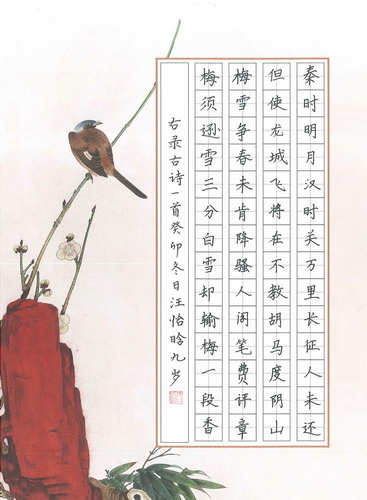 秦时明月汉时关万里长征人未还
但使龙城飞将在不教胡马度阴山
梅雪争春未肯降骚人阁笔费评章
梅须逊雪三分白雪却输梅一段香
右录古诗一首癸卯冬日汪怡晗九岁